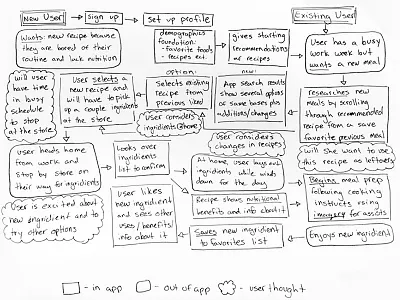 New User
sign up
set up profile
Existing User
Wants: new recipe because
they are bored of their
routine and lack nutrition
demographics
foundation:
- favorite foods
- recipes ect.
gives starting
recommendations
recipes
User has a busy
work week but
wants a new meal
will user
have time
in busy
schedule
to stop
at the store
User selects a
new recipe and
will have to pick
up a couple ingredients
at the store
option:
Selects existing
Recipe from
previous liked
new:
App search results
show several options
of same bases plus
additions/changes
researches new
meals by scrolling
through recommended
recipe from a save
favorite previous meal
User considers
ingredients @ home
User considers
changes in recipes
will she want to use
this recipe as leftovers
User heads home
from work and
stop by store on
their way for ingredients
Looks over
ingredients
list to confirm
At home user lays out
ingredients while winds
down for the day
Begins meal prep
following cooking
instructs using
imagery for assists
User is excited about
new ingredient and to
try other options
User likes
new ingredient
and sees other
uses/benefits/
info about it
Recipe shows nutritional
benefits and info about it
Saves new ingredient
to favorites list
Enjoys new ingredient
- in app
- out of app
- user thought